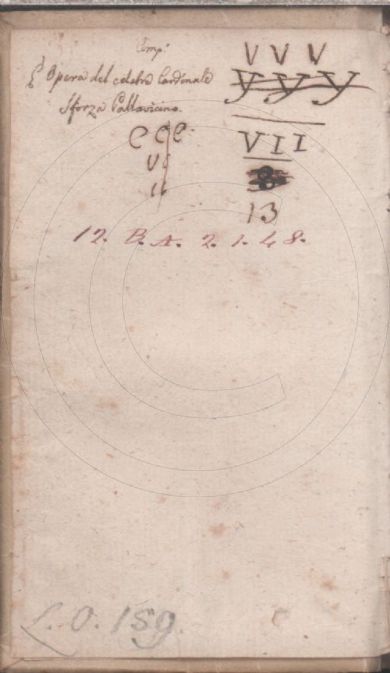 Comp:
È Opera del celebre Cardinale
Sforza Pallavicino.
V V V
y y y
C CC.
V
VII
8
13
12. B. A. 2. 1. 48.
L. O. 159.